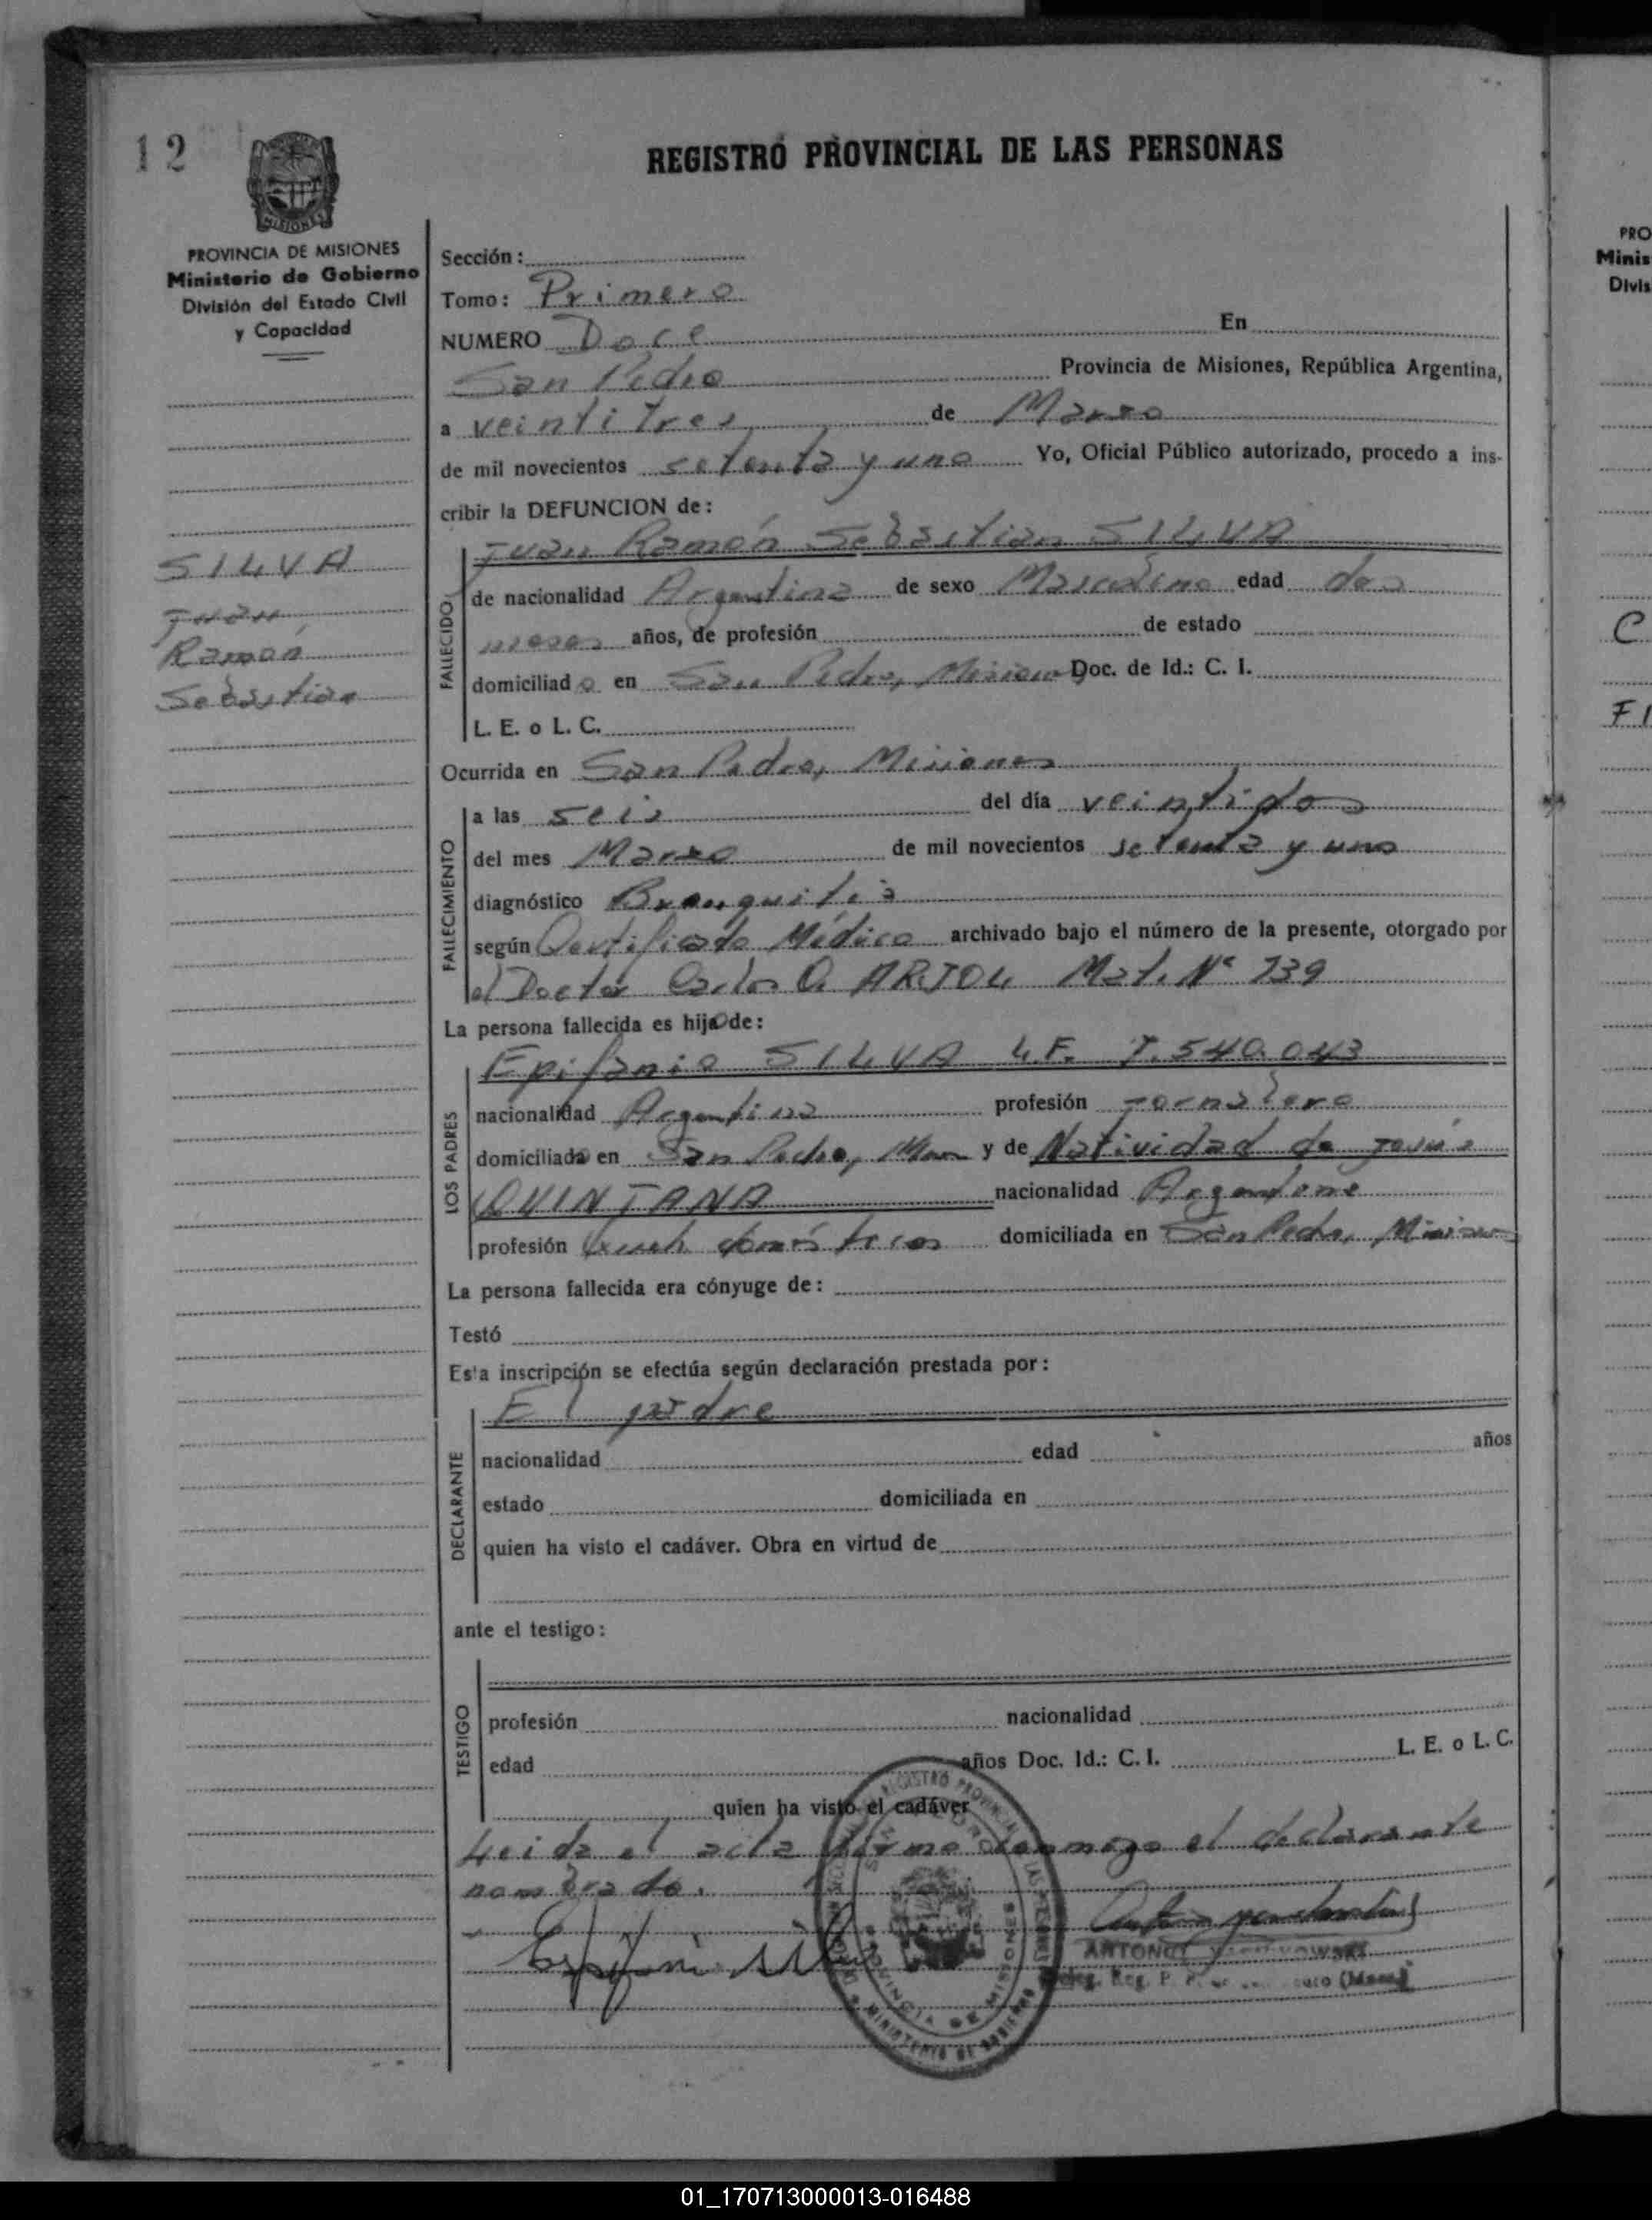 12
REGISTRO PROVINCIAL DE LAS PERSONAS
MISIONES
PROVINCIA DE MISIONES
Ministerio de Gobierno
División del Estado Civil
y Capacidad
SILVA
Juan
Ramón
Sebastian
Sección:
Tomo: Primero
NUMERO Doce En
San Pedro Provincia de Misiones, República Argentina,
a veintitres de Marzo
de mil novecientos setenta y uno Yo, Oficial Público autorizado, procedo a ins-
cribir la DEFUNCION de:
Juan Ramón Sebastian SILVA
FALLECIDO
de nacionalidad Argentina de sexo Masculino edad dos
meses años, de profesión de estado
domiciliado en San Pedro, Misiones Doc. de Id.: C. I.
L. E. o L. C.
Ocurrida en San Pedro, Misiones
FALLECIMIENTO
a las seis del día veintidos
del mes Marzo de mil novecientos setenta y uno
diagnóstico Bronquitis
según Certificado Médico archivado bajo el número de la presente, otorgado por
el Doctor Carlos O. ARJOL Mat. Nº 739
La persona fallecida es hijo de:
LOS PADRES
Epifanio SILVA L.E. 7.540.043
nacionalidad Argentina profesión Jornalero
domiciliado en San Pedro, Mnes y de Natividad de Jesús
QUINTANA nacionalidad Argentina
profesión domésticos domiciliada en San Pedro, Misiones
La persona fallecida era cónyuge de:
Testó
Esta inscripción se efectúa según declaración prestada por:
El padre
DECLARANTE
nacionalidad edad años
estado domiciliada en
quien ha visto el cadáver. Obra en virtud de
ante el testigo:
TESTIGO
profesión nacionalidad
edad años Doc. Id.: C. I. L. E. o L. C.
quien ha visto el cadáver
Leida el acta firma conmigo el declarante
nombrado.
REGISTRO PROVINCIAL DE LAS PERSONAS
PROVINCIA DE MISIONES
MINISTERIO DE GOBIERNO
ANTONIO
Deleg. Reg. P.
PRO
Minis
Divis
01_170713000013-016488